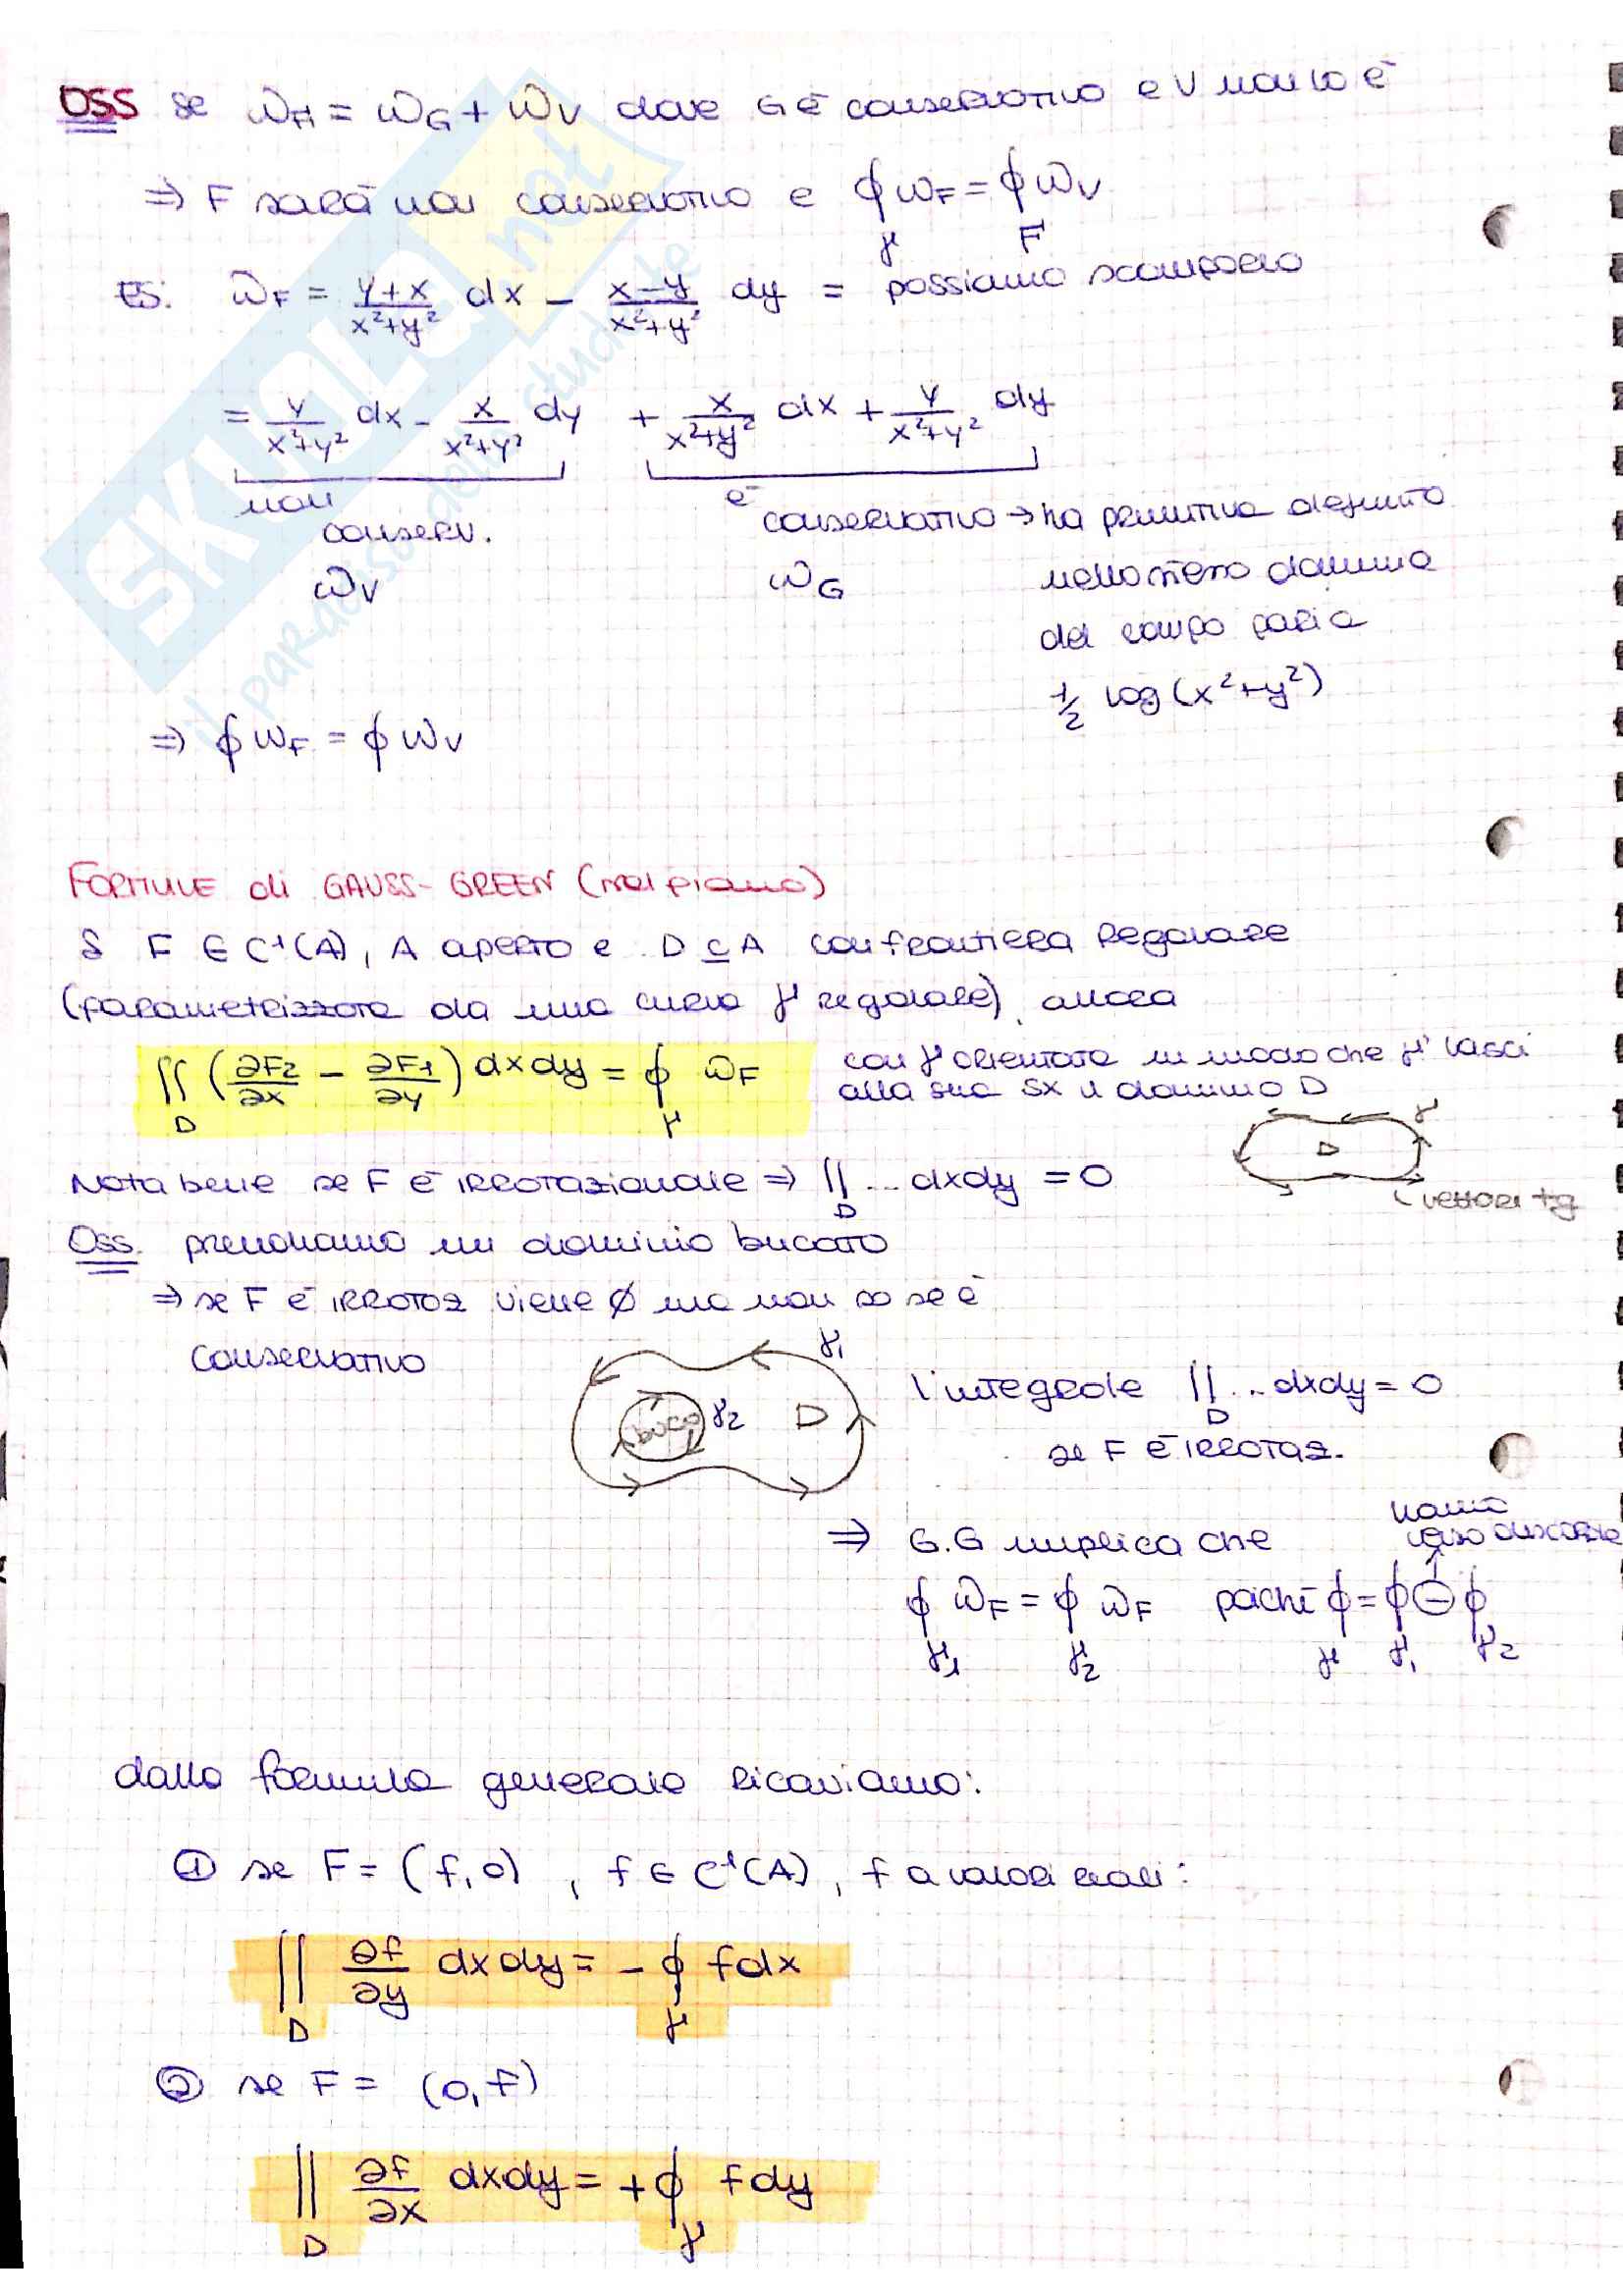 OSS se ω_F = ω_G + ω_V dove G è conservativo e V non lo è
⇒ F sarà non conservativo e ∮_γ ω_F = ∮_F ω_V
ES: ω_F = (y+x)/(x²+y²) dx - (x-y)/(x²+y²) dy = possiamo scomporlo
= y/(x²+y²) dx - x/(x²+y²) dy + x/(x²+y²) dx + y/(x²+y²) dy
non
conserv.
ω_V
è
conservativo → ha primitiva definita
nello stesso dominio
del campo pari a
1/2 log(x²+y²)
ω_G
⇒ ∮ ω_F = ∮ ω_V
FORMULE di GAUSS-GREEN (nel piano)
S F ∈ C¹(A), A aperto e D ⊆ A con frontiera regolare
(parametrizzata da una curva γ regolare), allora
∬_D (∂F₂/∂x - ∂F₁/∂y) dxdy = ∮_γ ω_F
con γ orientata in modo che γ lasci
alla sua sx il dominio D
γ
D
vettori tg
Nota bene se F è irrotazionale ⇒ ∬_D ... dxdy = 0
Oss. prendiamo un dominio bucato
⇒ se F è irrotaz viene Ø ma non so se è
conservativo
γ₁
buco γ₂ D
l'integrale ∬_D ... dxdy = 0
se F è irrotaz.
⇒ G.G implica che
hanno
verso discorde
∮_γ₁ ω_F = ∮_γ₂ ω_F poiché ∮_γ = ∮_γ₁ ⊖ ∮_γ₂
dalla formula generale ricaviamo:
① se F = (f,0) , f ∈ C¹(A), f a valori reali:
∬_D ∂f/∂y dxdy = - ∮_γ f dx
② se F = (0,f)
∬_D ∂f/∂x dxdy = + ∮_γ f dy
SKUOLA.net
il paradiso dello studente